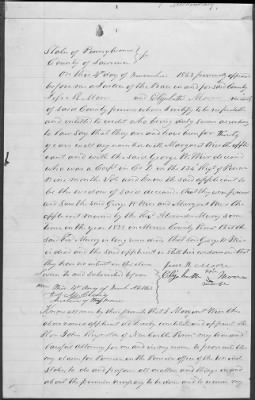 State of Pennsylvania } ss
County of Lawrence
On this 4th day of November 1863 personally appeared
before me a Justice of the Peace in and for said County
Jesse R. Moore and Elizabeth Moore residents
of said County persons whom I certify to be respectable
and entitled to credit who being duly sworn according
to law say that they are and have been for thirty
years well acquainted with Margaret the appli-
cant and with the said George W. deceased
who was a in Co. in the 134 Regt of
nine months Vols and know the said applicant to
be the widow of said deceased. that they were present
and saw the said George W. and Margaret the
applicant married by the Rev. Alexander Murray some
time in the year 1833 in Mercer County Penna that the
said Rev Murray is long since dead that said George W.
is dead and the said applicant is still his widow and that
they have no interest in the claim
Sworn to and subscribed before
me this 4th day of Novr 1863
Justice of the Peace
Jesse R. Moore
Elizabeth her x mark Moore
Know all men by these presents that I Margaret the
above named applicant do hereby constitute and appoint the
Hon John of New Castle Penna my true and
Lawful Attorney for me and in my name to prosecute
my claim for Pension at the Pension office of the United
States to do and perform all matters and things required
about the premises necessary to be done and to receive my